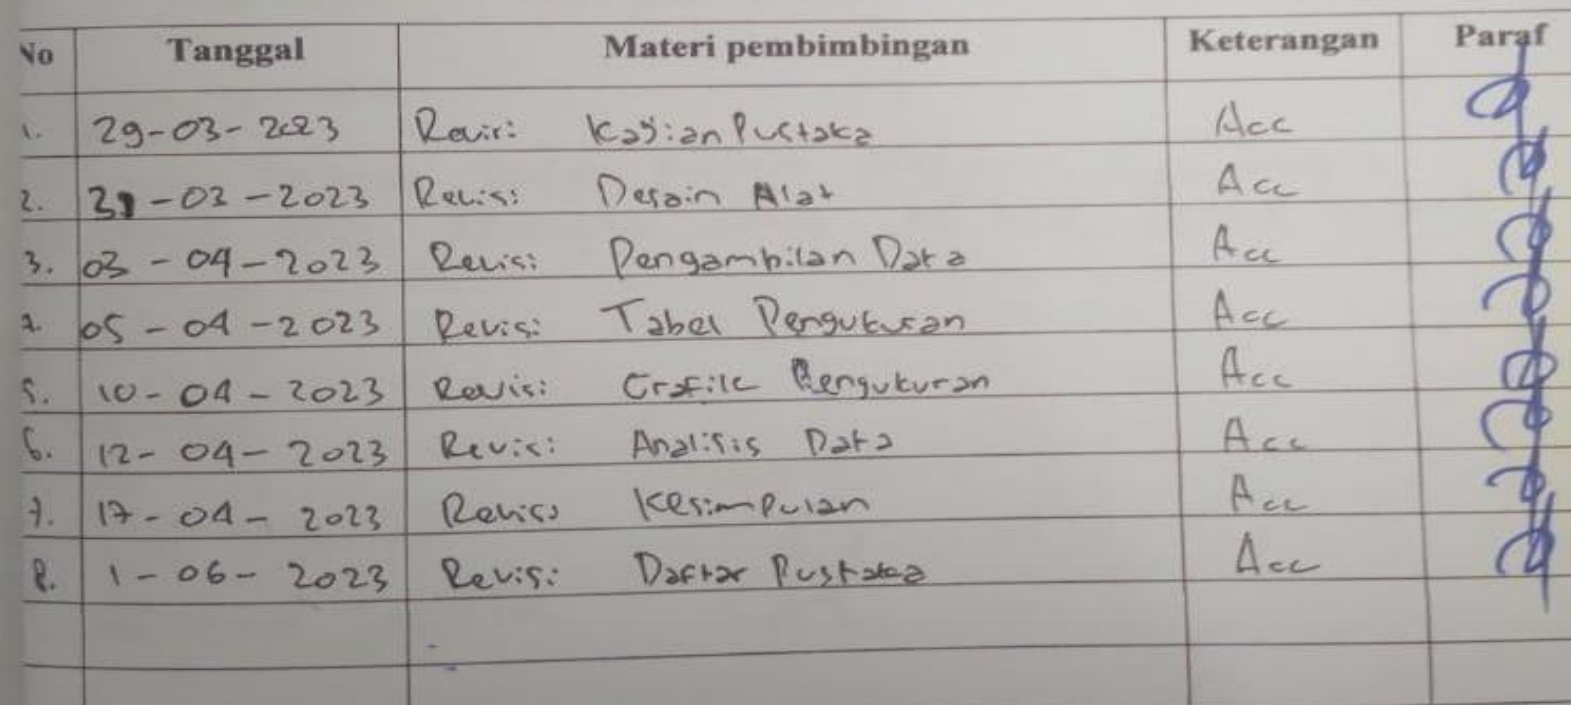 No Tanggal Materi pembimbingan Keterangan Paraf
1. 29-03-2023 Revisi Kajian Pustaka Acc
2. 31-03-2023 Revisi Desain Alat Acc
3. 03-04-2023 Revisi Pengambilan Data Acc
4. 05-04-2023 Revisi Tabel Pengukuran Acc
5. 10-04-2023 Revisi Grafik Pengukuran Acc
6. 12-04-2023 Revisi Analisis Data Acc
7. 17-04-2023 Revisi Kesimpulan Acc
8. 1-06-2023 Revisi Daftar Pustaka Acc